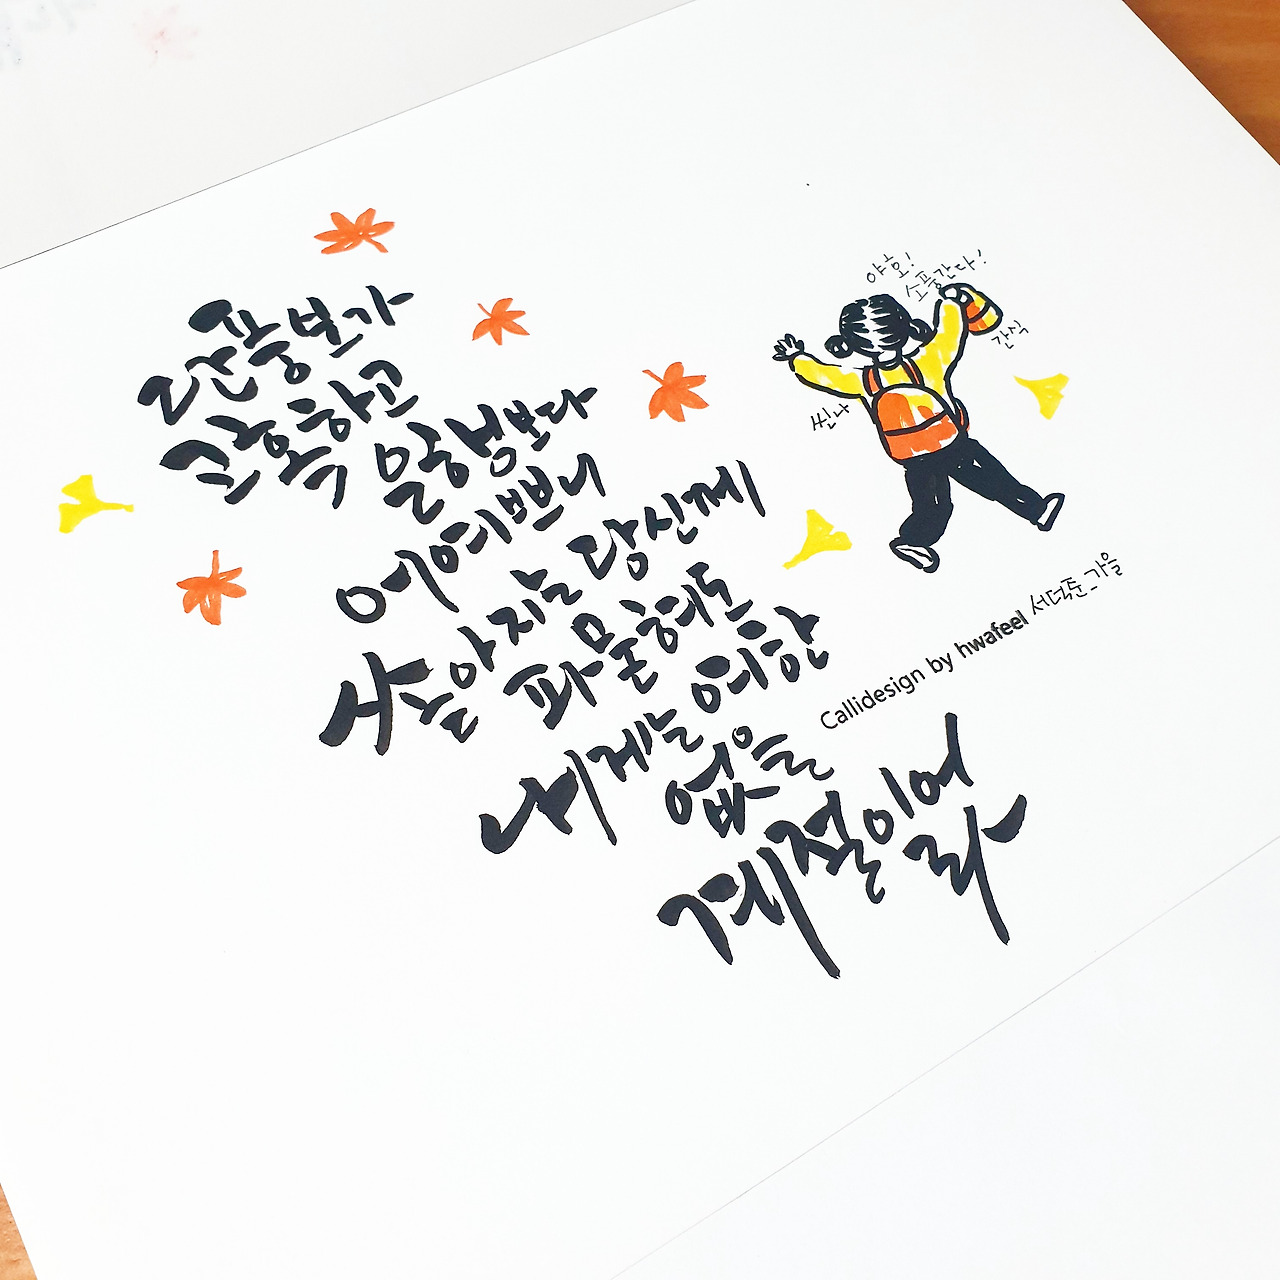 단풍보다
고혹하고
은행보다
어여쁘니
쏟아지는 당신께
파묻혀도
내게는 여한
없을
계절이어
라
야호!
소풍간다!
간식
씐나
Callidesign by hwafeel 서덕준_가을